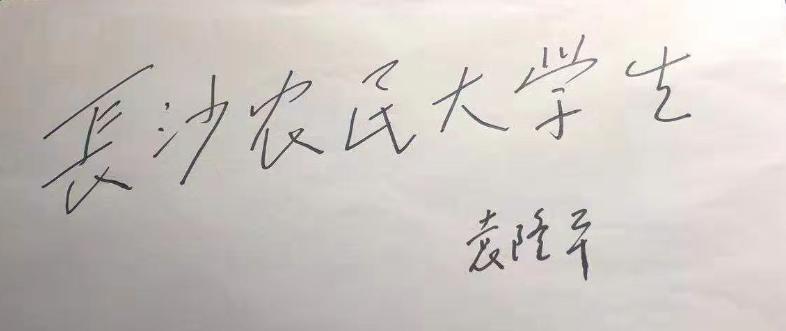 長沙农民大学生
袁隆平